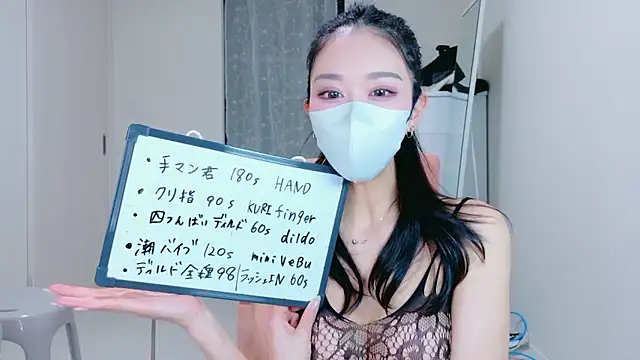 ・手マン君 180s HAND
・クリ指 90s KURI finger
・四つんばいディルド 60s dildo
・潮バイブ 120s mini VeBu
・ディルド全種98/ラッシュIN 60s